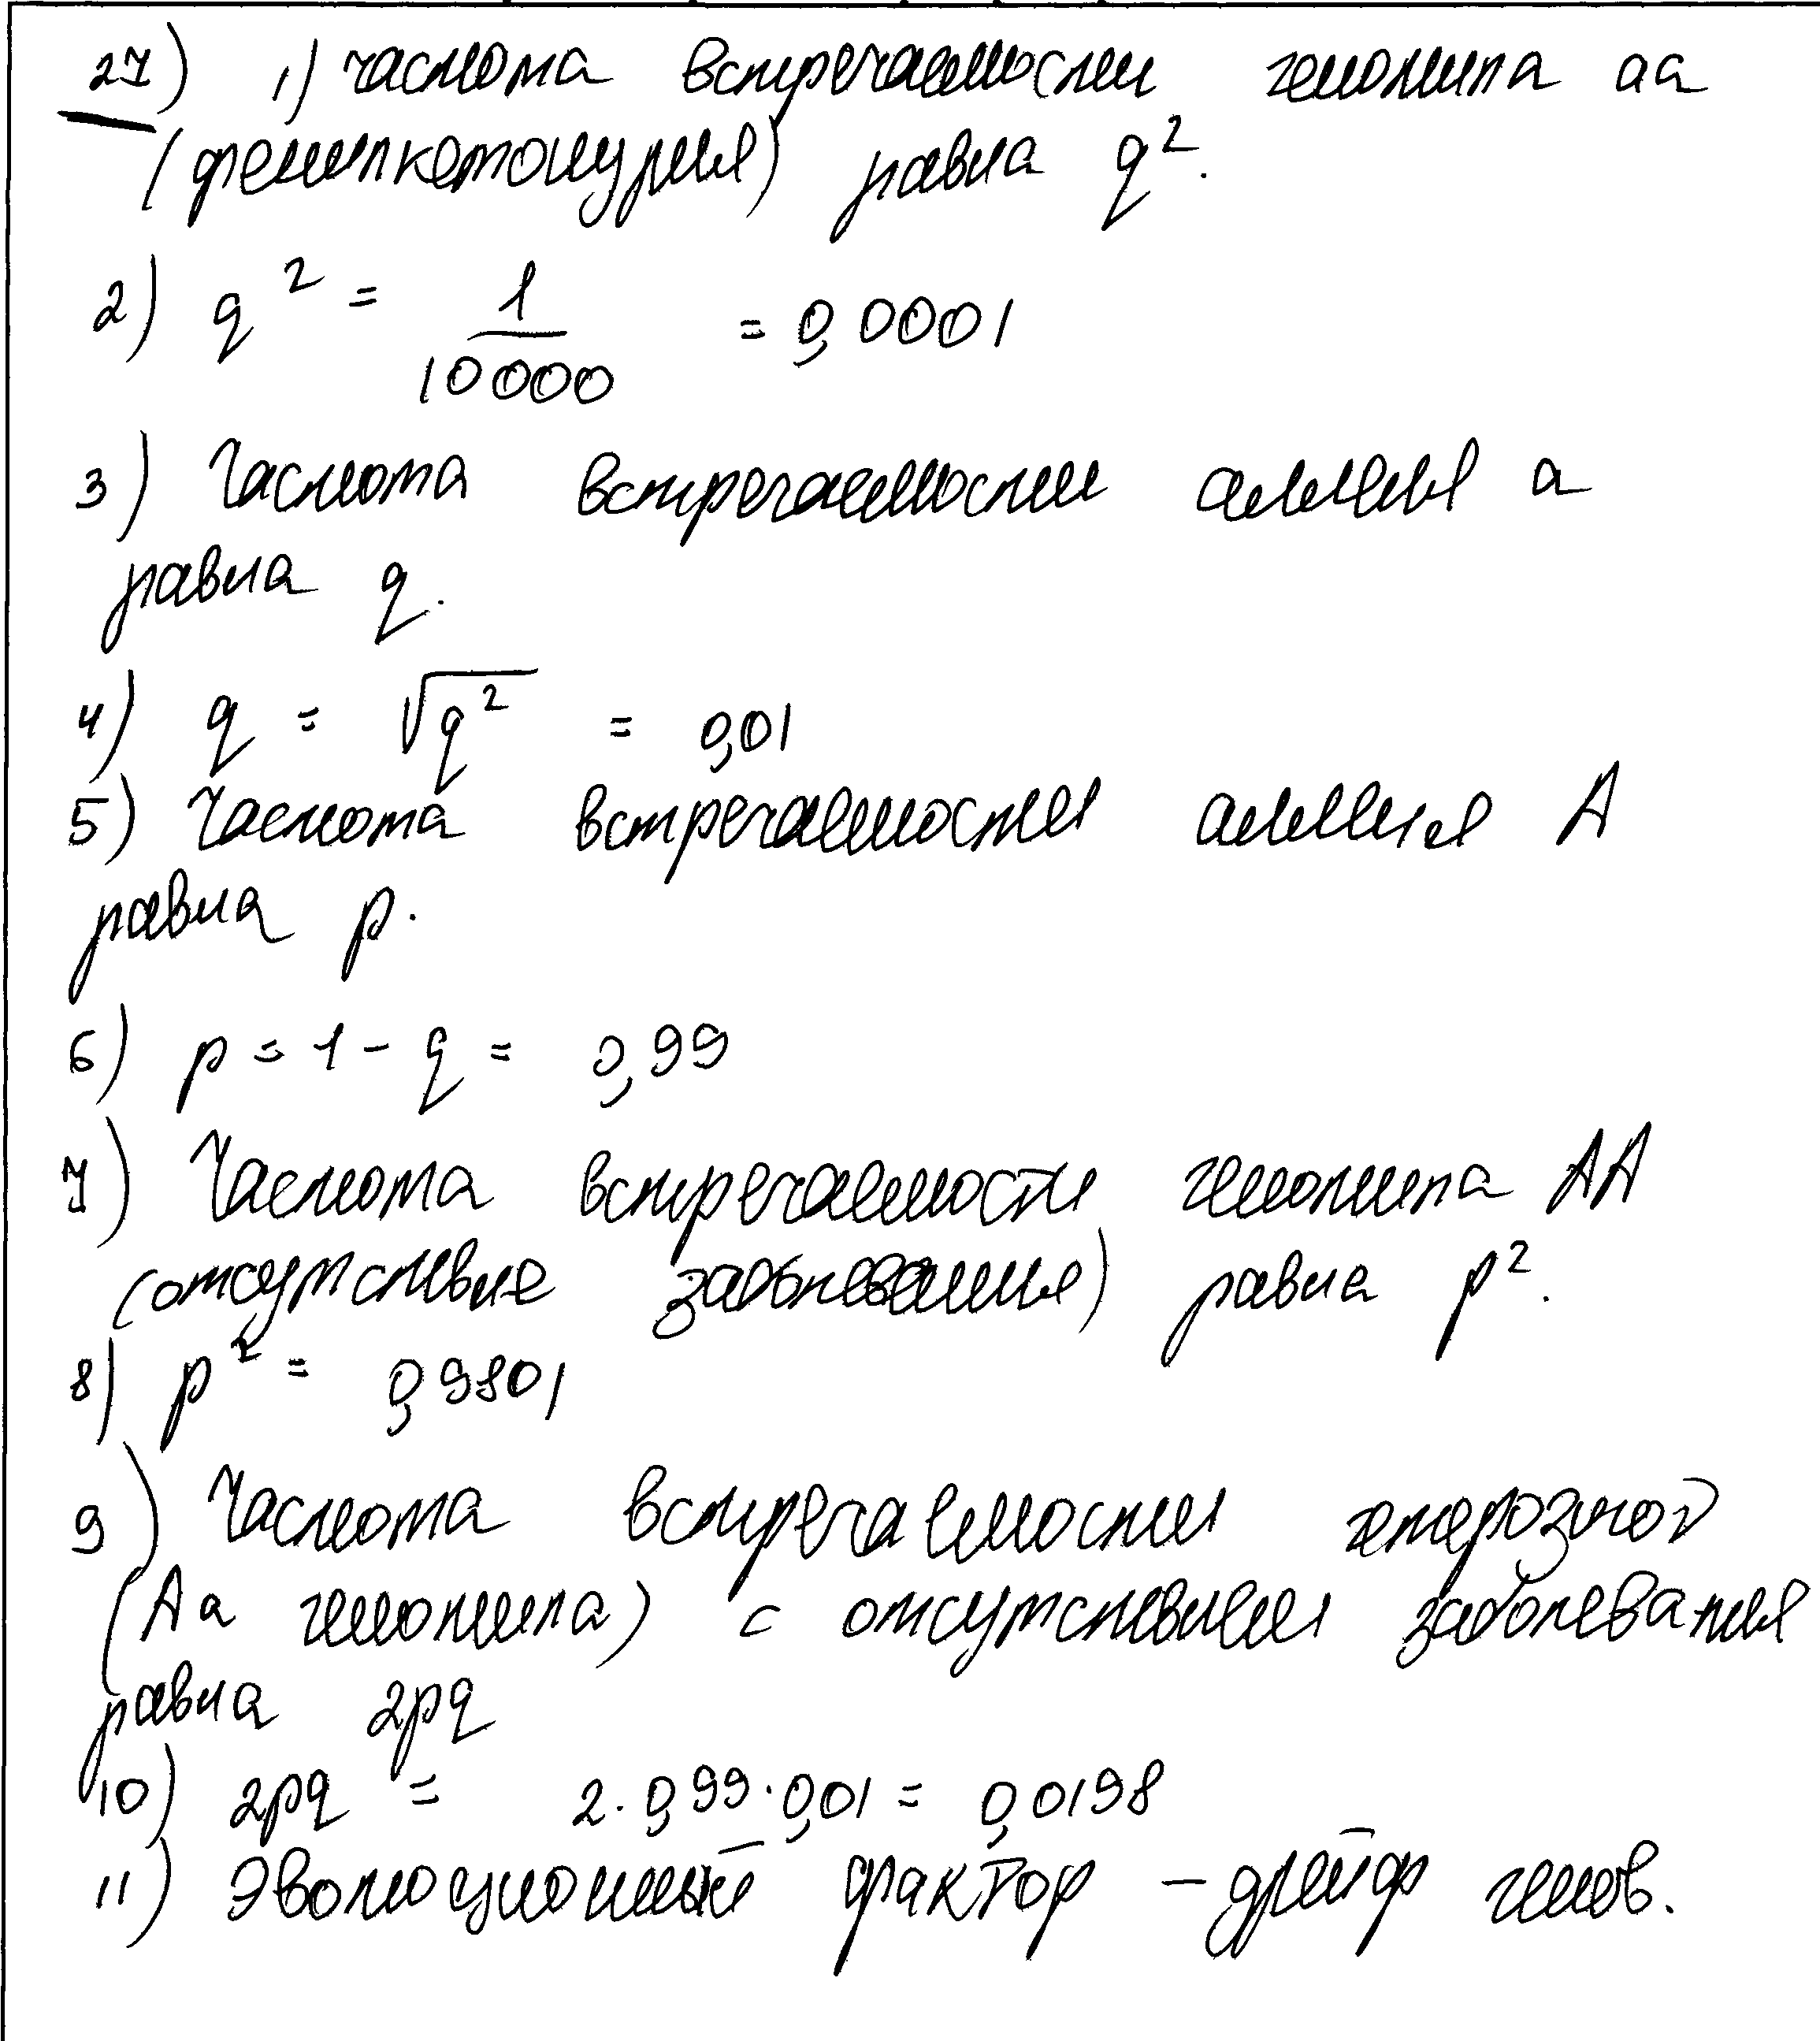 27) 1) частота встречаемости генотипа aa
(фенилкетонурия) равна q².
2) q² = 1/10000 = 0,0001
3) Частота встречаемости аллеля a
равна q.
4) q = √q² = 0,01
5) Частота встречаемости аллеля A
равна p.
6) p = 1 - q = 0,99
7) Частота встречаемости генотипа AA
(отсутствие заболевания) равна p².
8) p² = 0,9801
9) Частота встречаемости гетерозигот
(Aa генотипа) с отсутствием заболевания
равна 2pq
10) 2pq = 2·0,99·0,01 = 0,0198
11) Эволюционный фактор – дрейф генов.